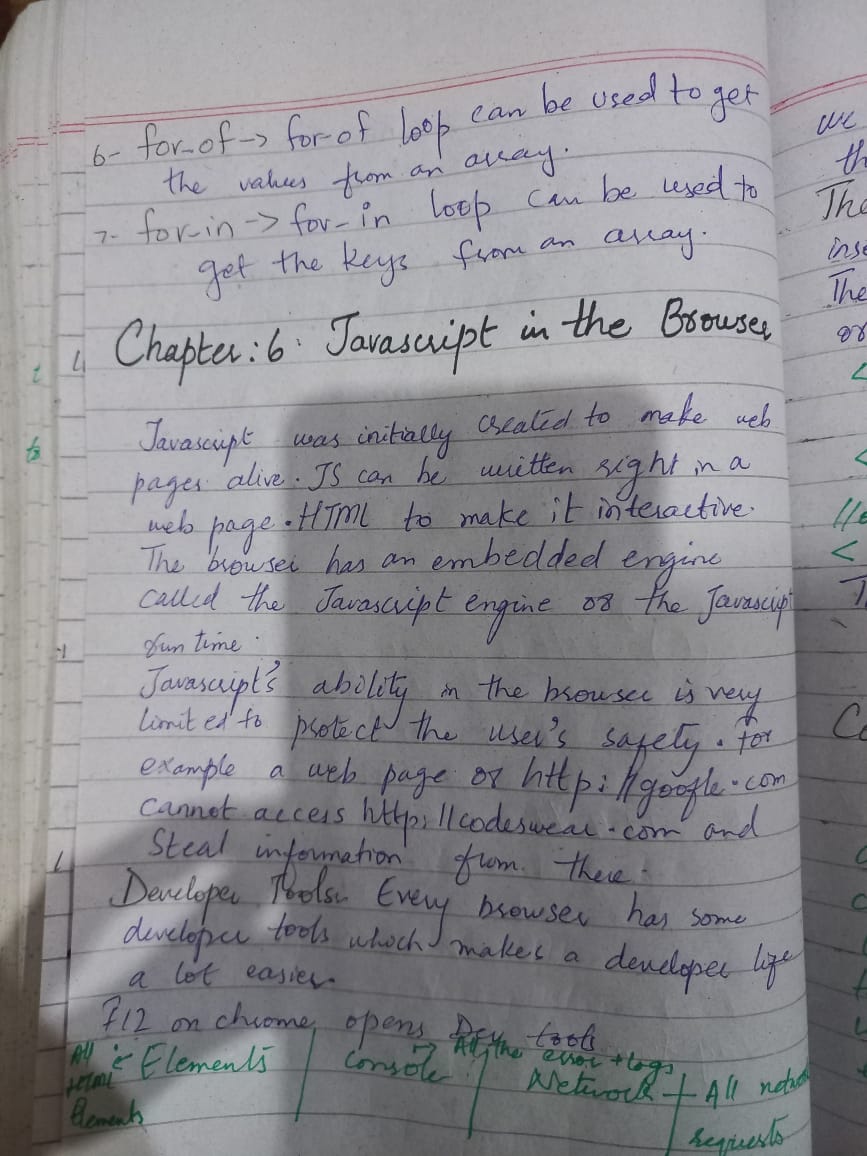 6- for-of -> for-of loop can be used to get
the values from an array.
7- for-in -> for-in loop can be used to
get the keys from an array.
Chapter: 6: Javascript in the Browser
Javascript was initially created to make web
pages alive. JS can be written right in a
web page. HTML to make it interactive.
The browser has an embedded engine
called the Javascript engine or the Javascript
run time.
Javascript's ability in the browser is very
limited to protect the user's safety. For
example a web page or http://google.com
cannot access http://codeswear.com and
Steal information from there.
Developer Tools: Every browser has some
developer tools which makes a developer life
a lot easier.
F12 on chrome opens Dev tools
All HTML Elements <- Elements | Console -> All the error + logs | Network -> All network requests
we
th
The
inse
The
or
<
<
//
<
T
Co